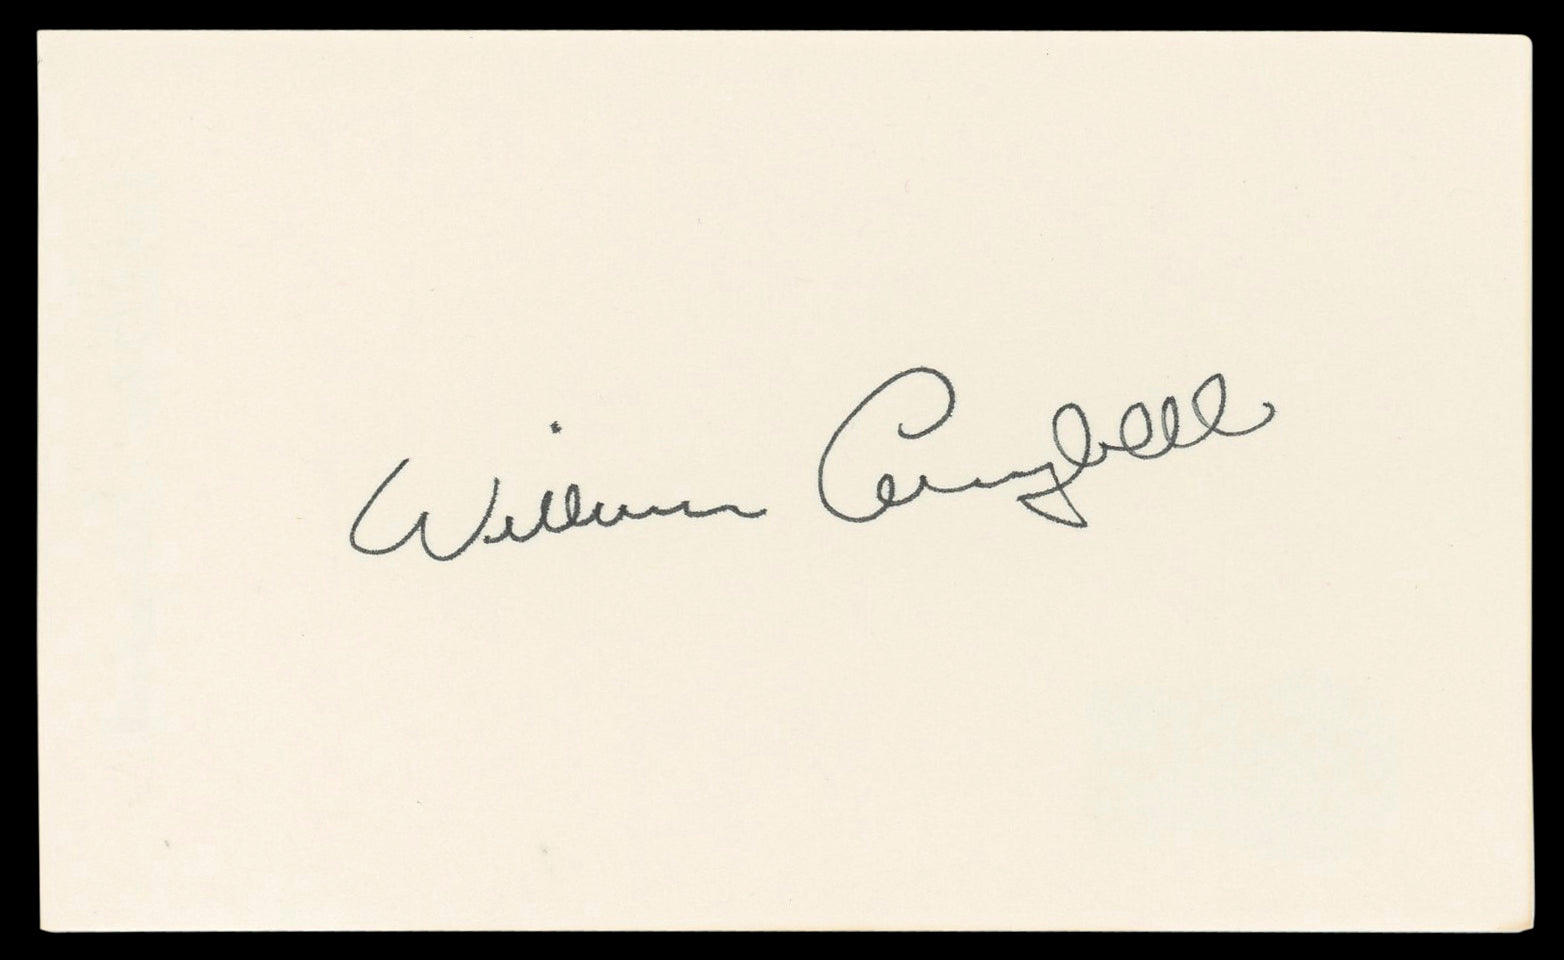 William Campbell